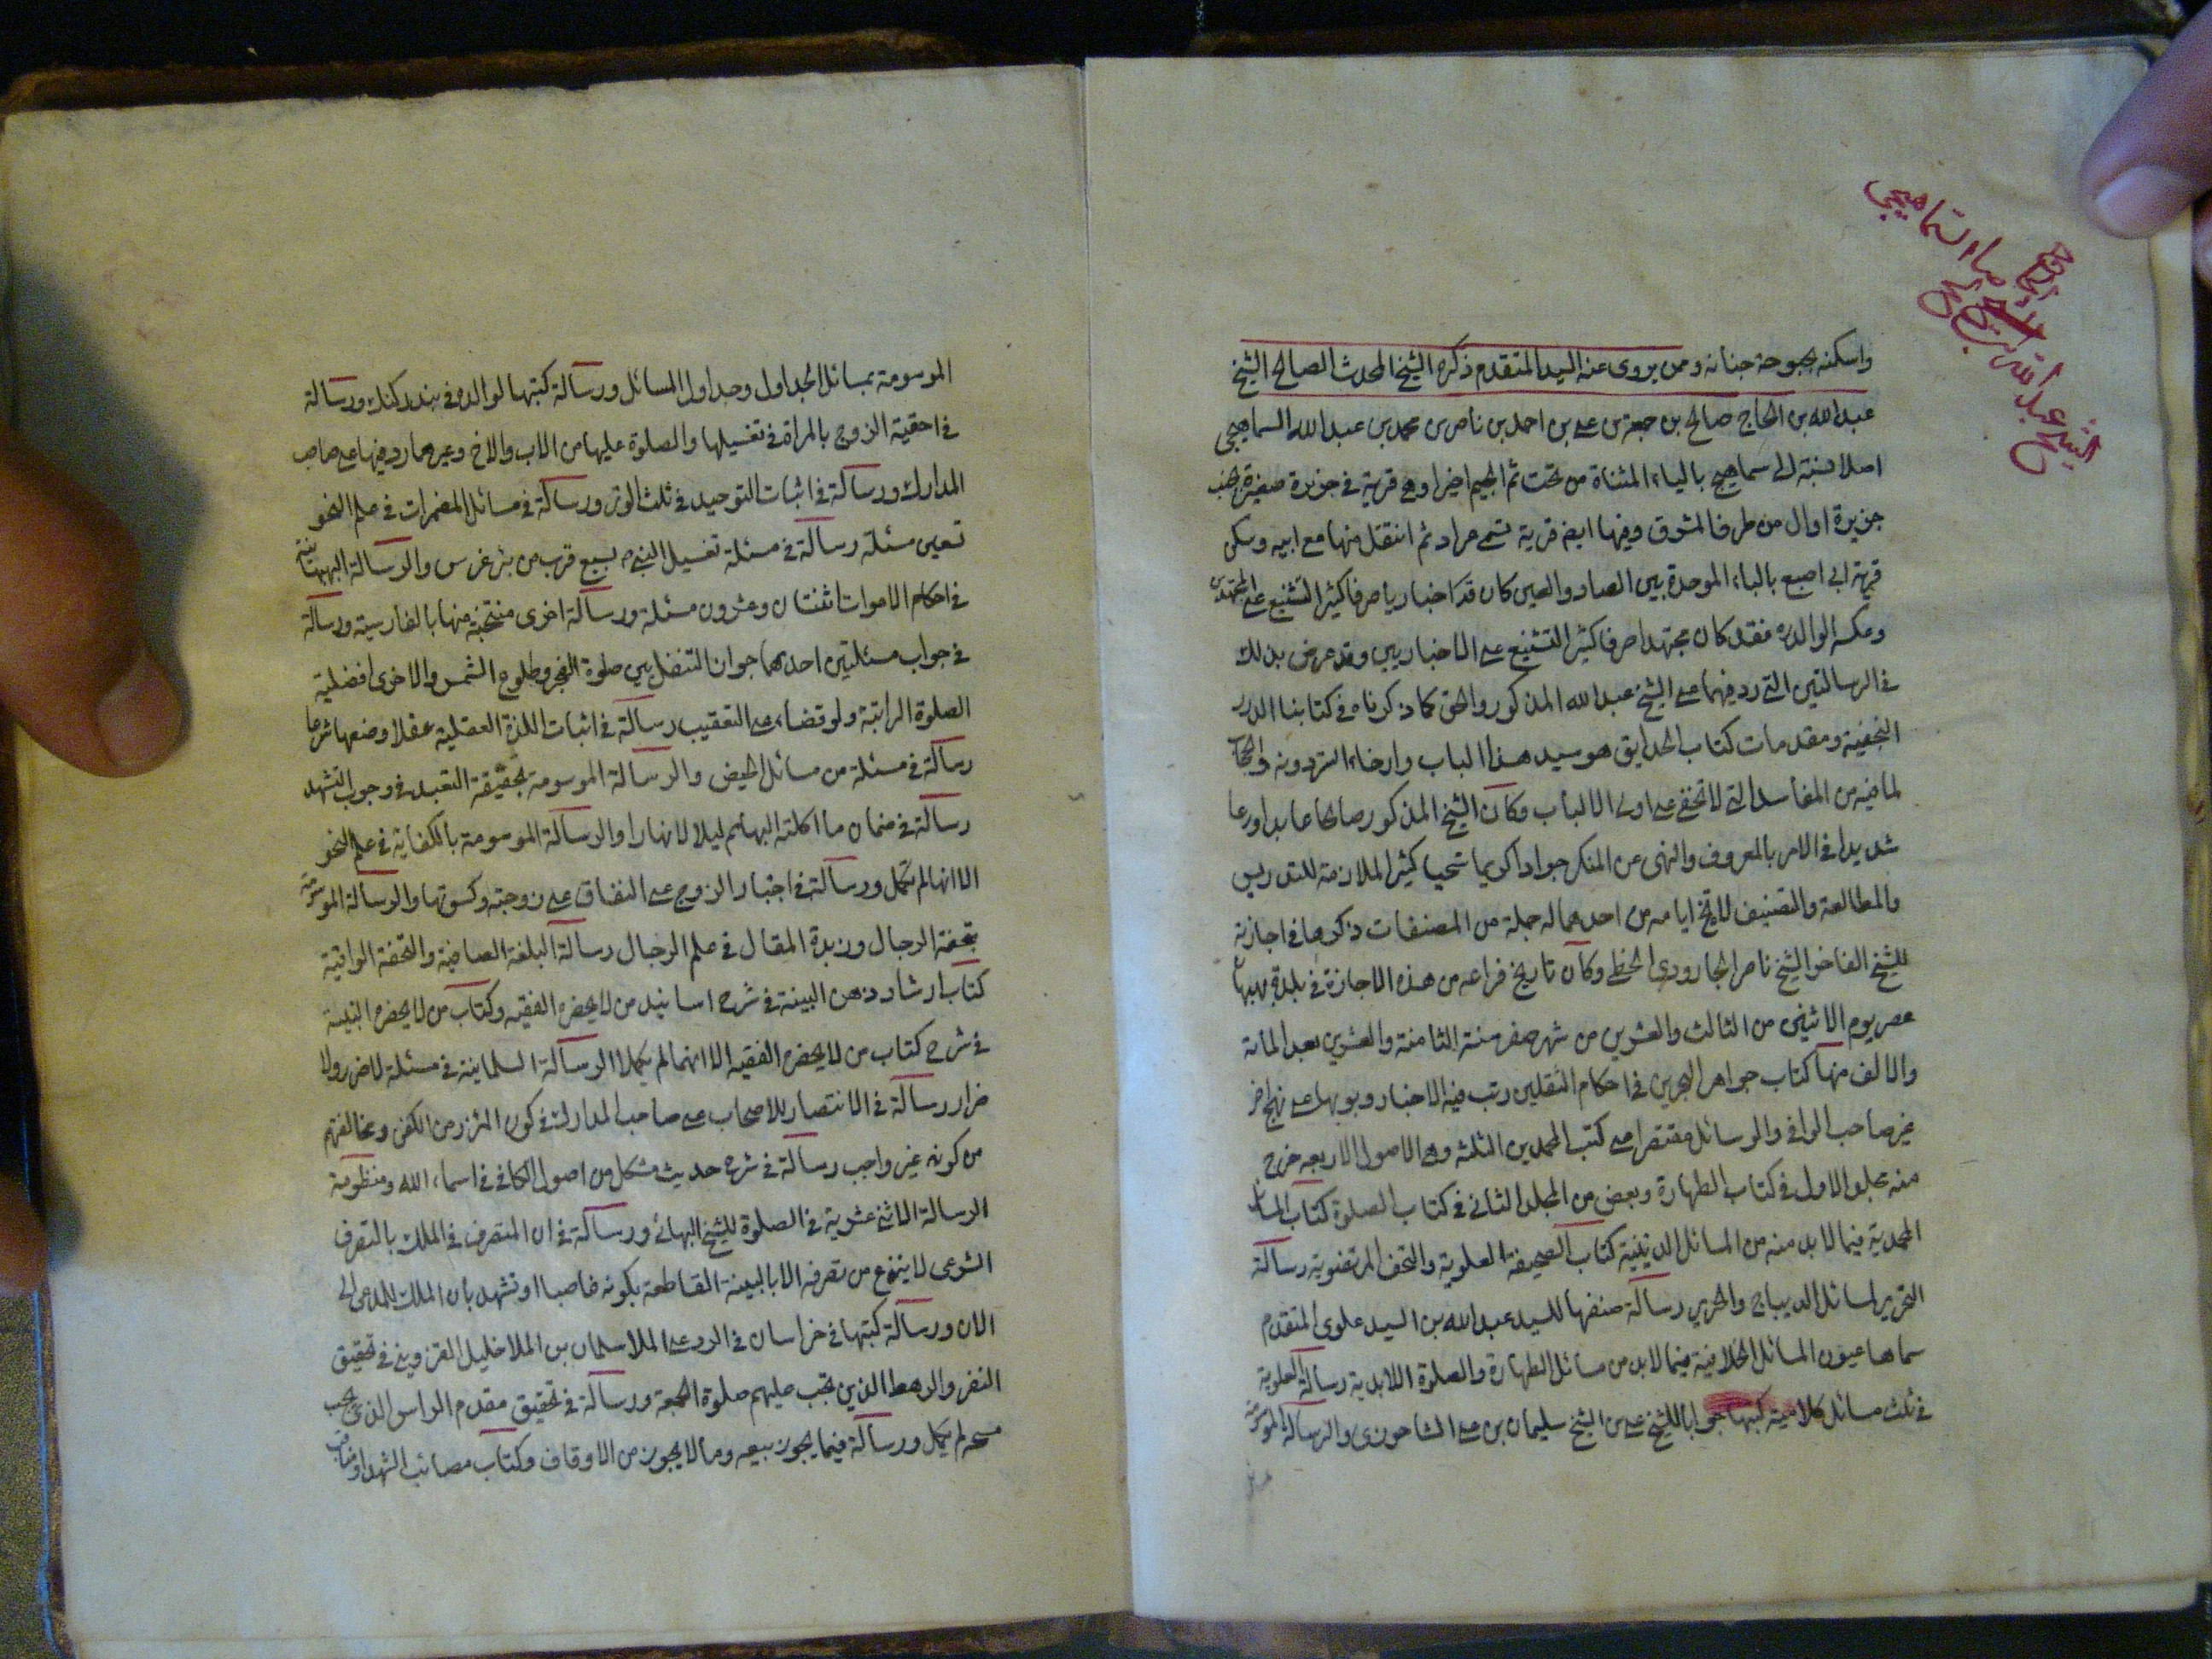 الشيخ عبد الله بن الحاج صالح السماهيجي
واسكنه بحبوحة جنانه وممن يروى عنه السيد المتقدم ذكره الشيخ المحدث الصالح الشيخ
عبد الله بن الحاج صالح بن جمعة بن على بن احمد بن ناصر بن محمد بن عبد الله السماهيجى
اصلا نسبة الى سماهيج بالياء المثناة من تحت ثم الجيم اخيرا وهى قرية فى جزيرة صغيرة بجنب
جزيرة اوال من طرف المشرق وفيها ايضا قرية تسمى مراد ثم انتقل منها مع ابيه وسكن
قرية ابى اصبع بالباء الموحدة بين الصاد والعين كان قده اخباريا صرفا كثير التشنيع على المجتهدين
وعكسه الوالد ره فقد كان مجتهدا صرفا كثير التشنيع على الاخباريين وقد عرض بذلك
فى الرسالتين التى رد فيهما على الشيخ عبد الله المذكور والحق كما ذكرناه فى كتابنا الدرر
النجفية ومقدمات كتاب الحدايق هو سد هذا الباب وارخاء الستر دونه والحجاب
لما فيه من المفاسد التى لا تخفى على اولى الالباب وكان الشيخ المذكور صالحا عابدا ورعا
شديدا فى الامر بالمعروف والنهى عن المنكر جوادا كريما سخيا كثير الملازمة للتدريس
والمطالعة والتصنيف لا تخلو ايامه من احدهما له جملة من المصنفات ذكرها فى اجازته
للشيخ الفاخر الشيخ ناصر الجارودى الخطى وكان تاريخ فراغه من هذه الاجازة فى بلدة بهبهان
عصر يوم الاثنين من الثالث والعشرين من شهر صفر سنة الثامنة والعشرين بعد المائة
والالف منها كتاب جواهر البحرين فى احكام الثقلين رتب فيه الاخبار وبوبها على نهج اخر
غير صاحب الوافى والوسائل مقتصرا على كتب المحمدين الثلثة وهى الاصول الاربعه خرج
منه مجلد الاول فى كتاب الطهارة وبعض من المجلد الثانى فى كتاب الصلوة كتاب المسائل
المحمدية فيما لا بد منه من المسائل الدينية كتاب الصحيفة العلوية والتحفة المرتضوية رسالة
التحرير لمسائل الديباج والحرير رسالة صنفها للسيد عبد الله بن السيد علوى المتقدم
سماها عيون المسائل الخلافية فيما لا بد من مسائل الطهارة والصلوة اللابدية رسالة العلوية
فى ثلث مسائل كلامية كتبها جوابا للشيخ على بن الشيخ سليمان بن على الشاخورى والرسالة الموسومة
الموسومة بمسائل الجداول وجداول المسائل ورسالة كتبها لوالده فى بندر كنك ورسالة
فى احقية الزوج بالمراة فى تغسيلها والصلوة عليها من الاب والاخ وغيرهما رد فيها على صاحب
المدارك ورسالة فى اثبات التوحيد فى ثلث الوتر ورسالة فى مسائل المضمرات فى علم النحو
تسعين مسئلة رسالة فى مسئلة تغسيل النبى ص بسبع قرب من بئر غرس والرسالة البهبهانية
فى احكام الاموات اثنتان وعشرون مسئلة ورسالة اخرى منتخبة منها بالفارسية ورسالة
فى جواب مسئلتين احدهما جواز التنفل بين صلوة الفجر وطلوع الشمس والاخرى افضلية
الصلوة الراتبة ولو قضاء على التعقيب رسالة فى اثبات اللذة العقلية عقلا ومنعها شرعا
رسالة فى مسئلة من مسائل الحيض والرسالة الموسومة بحقيقة التعبد فى وجوب التشهد
رسالة فى ضمان ما اكلته البهائم ليلا لا نهارا والرسالة الموسومة بالكفاية فى علم النحو
الا انها لم تكمل ورسالة فى اجبار الزوج على النفاق على زوجته وكسوتها والرسالة الموسومة
بتحفة الرجال وزبدة المقال فى علم الرجال رسالة البلغة الصافية والتحفة الوافية
كتاب ارشاد ذهن البينة فى شرح اسانيد من لا يحضره الفقيه وكتاب من لا يحضره النبيه
فى شرح كتاب من لا يحضره الفقيه الا انهما لم يكملا الرسالة السلمانية فى مسئلة لا ضرر ولا
ضرار رسالة فى الانتصار للاصحاب على صاحب المدارك فى كون المئزر من الكفن ومخالفتهم
من كونه غير واجب رسالة فى شرح حديث مشكل من اصول الكافى فى اسماء الله ومنظومة
الرسالة الاثنى عشرية فى الصلوة للشيخ البهائى ورسالة فى ان المتصرف فى الملك بالتصرف
الشرعى لا ينتزع من تصرفه الا بالبينة القاطعة بكونه غاصبا او تشهد بان الملك للمدعى الى
الان ورسالة كتبها فى خراسان فى الرد على الملا سلمان بن الملا خليل القزوينى فى تحقيق
النفر والرهط الذين تجب عليهم صلوة الجمعة ورسالة فى تحقيق مقدم الراس الذى يجب
مسحه لم يكمل ورسالة فيما يجوز بيعه وما لا يجوز من الاوقاف وكتاب مصائب الشهداء ومناقب